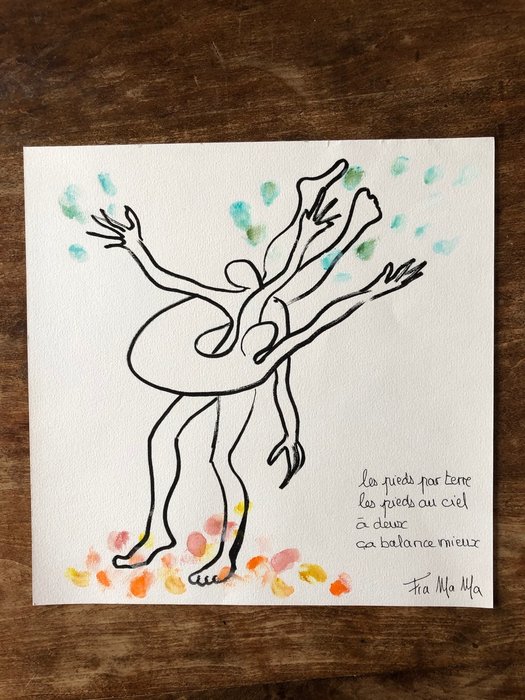 les pieds par terre
les pieds au ciel
à deux
ça balance mieux
Fra Ma Ma